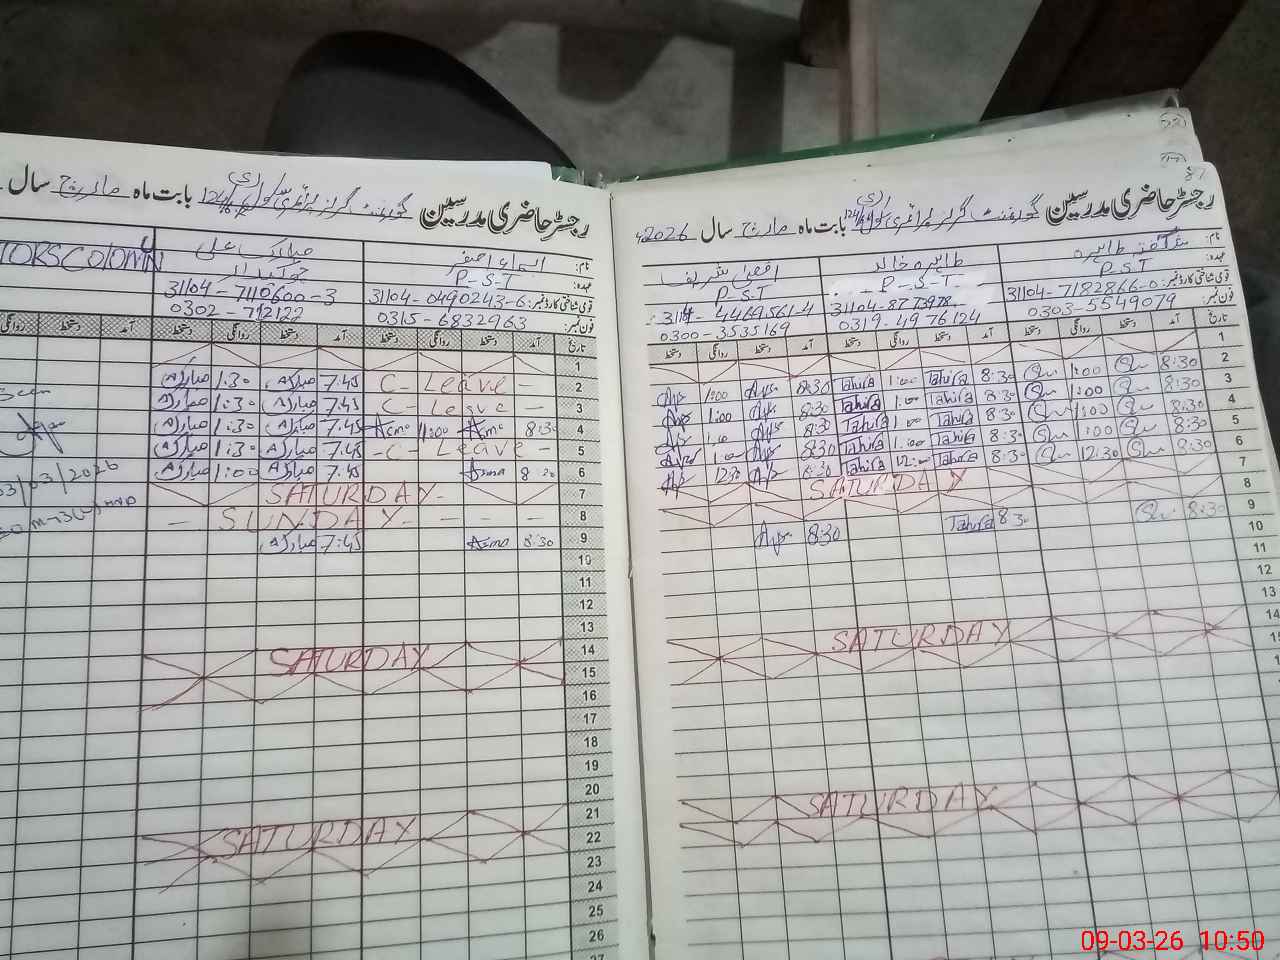 رجسٹر حاضری مدرسین گورنمنٹ گرلز پرائمری سکول 124/ بابت ماہ مارچ سال 2026ء
نام: شگفتہ طاہرہ طاہرہ خالد اقصیٰ شریف
عہدہ: P.S.T P-S-T P-S-T
قومی شناختی کارڈ نمبر: 31104-7182866-0
فون نمبر: 0303-5549079 0319-4976124 0300-3535169
تاریخ آمد دستخط روانگی دستخط آمد دستخط روانگی دستخط آمد دستخط روانگی دستخط
1
2 8:30 1:00 8:30 Tahira 1:00 Tahira 8:30 1:00
3 8:30 1:00 8:30 Tahira 1:00 Tahira 8:30 1:00
4 8:30 1:00 8:30 Tahira 1:00 Tahira 8:30 1:00
5 8:30 1:00 8:30 Tahira 1:00 Tahira 8:30 1:00
6 8:30 12:30 8:30 Tahira 12:00 Tahira 8:30 12:30
7 SATURDAY
8
9 8:30 Tahira 8:30 8:30
10
11
12
13
14 SATURDAY
15
SATURDAY
رجسٹر حاضری مدرسین گورنمنٹ گرلز پرائمری سکول 124/ بابت ماہ مارچ سال
نام: اسماء اصغر مبارک علی
عہدہ: P-S-T چوکیدار
قومی شناختی کارڈ نمبر: 31104-0490243-6 31104-7110600-3
فون نمبر: 0315-6832963 0302-712122
تاریخ آمد دستخط روانگی دستخط آمد دستخط روانگی دستخط آمد دستخط روانگی
1
2 C- Leave - 7:45 مبارک 1:30 مبارک
3 C- Leave - 7:45 مبارک 1:30 مبارک
4 8:30 Asma 1:00 Asma 7:45 مبارک 1:30 مبارک
5 -C- Leave - 7:45 مبارک 1:30 مبارک
6 8:20 Asma 7:45 مبارک 1:00 مبارک
7 SATURDAY-
8 - SUNDAY - - - -
9 8:30 Asma 7:45 مبارک
10
11
12
13
14 SATURDAY
15
16
17
18
19
20
21
22 SATURDAY
23
24
25
26
27
Seen
03/03/2026
09-03-26 10:50